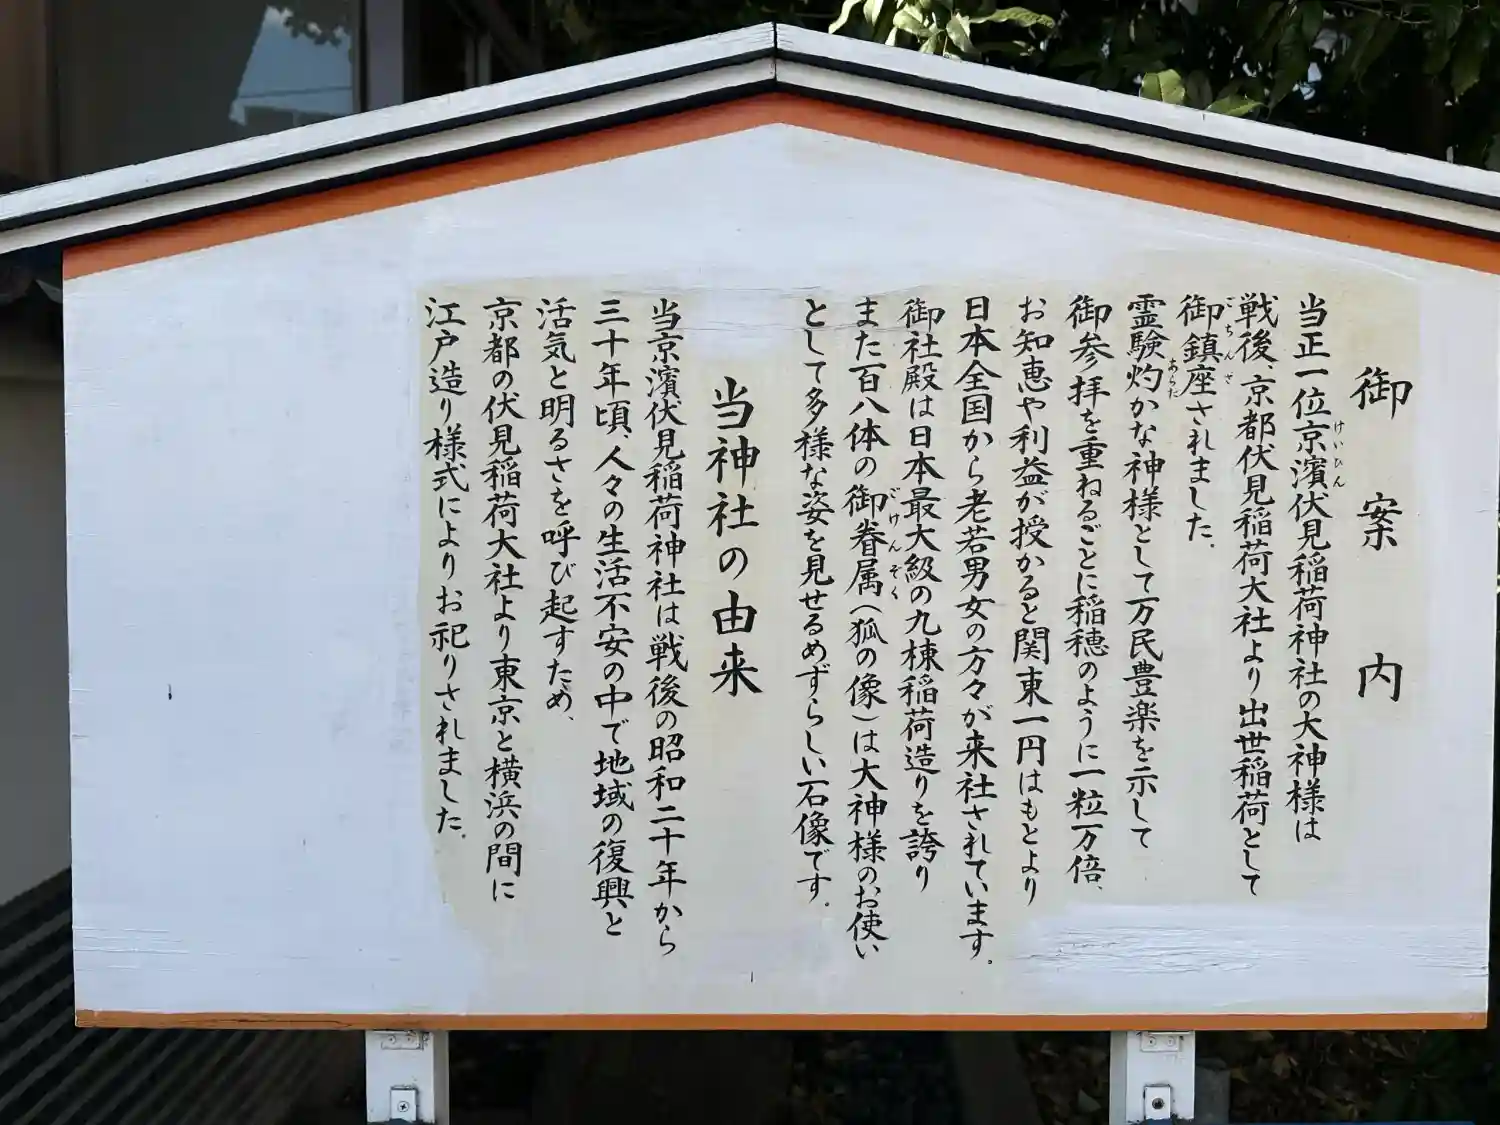 御案内
当正一位京濱伏見稲荷神社の大神様は
けいひん
戦後、京都伏見稲荷大社より出世稲荷として
御鎮座されました。
ごちんざ
霊験灼かな神様として万民豊楽を示して
あらた
御参拝を重ねるごとに稲穂のように一粒万倍、
お知恵や利益が授かると関東一円はもとより
日本全国から老若男女の方々が来社されています。
御社殿は日本最大級の九棟稲荷造りを誇り
また百八体の御眷属(狐の像)は大神様のお使い
ごけんぞく
として多様な姿を見せるめずらしい石像です。
当神社の由来
当京濱伏見稲荷神社は戦後の昭和二十年から
三十年頃、人々の生活不安の中で地域の復興と
活気と明るさを呼び起すため、
京都の伏見稲荷大社より東京と横浜の間に
江戸造り様式によりお祀りされました。